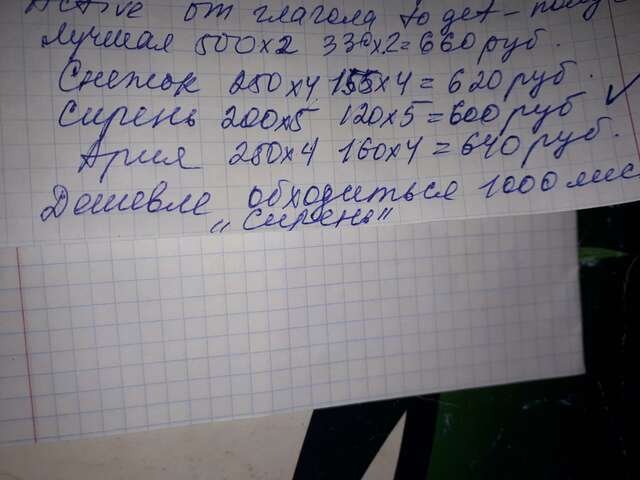 Active от глагола to get -
Лучшая 500х2 330х2=660руб.
Снежок 250х4 155х4=620руб.
Сирень 200х5 120х5=600руб ✓
Ария 250х4 160х4=640руб.
Дешевле обходиться 1000 лис
"Сирень"